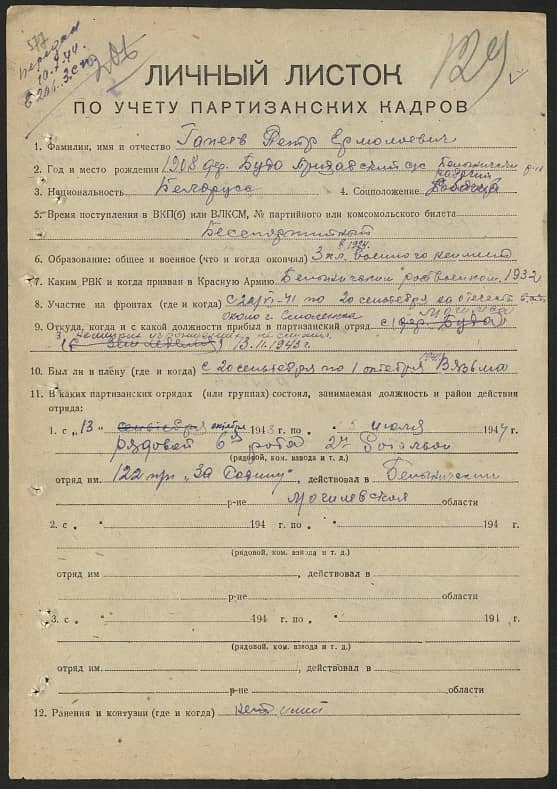 577
ЛИЧНЫЙ ЛИСТОК
ПО УЧЕТУ ПАРТИЗАНСКИХ КАДРОВ
1. Фамилия, имя и отчество Гапеев Петр Ермолаевич
2. Год и место рождения 1908 дер. Буда с/с Белыничский р-н
3. Национальность Беларусс 4. Соцположение рабочий
5. Время поступления в ВКП(б) или ВЛКСМ, № партийного или комсомольского билета
Беспартийный
6. Образование: общее и военное (что и когда окончил) 3 кл.
7. Каким РВК и когда призван в Красную Армию Белыничский 1932
8. Участие на фронтах (где и когда) с по 20 сентября
около г. Смоленска
9. Откуда, когда и с какой должности прибыл в партизанский отряд с дер. Буда
10. Был ли в плену (где и когда) с 20 сентября по 1 октября Вязьма
11. В каких партизанских отрядах (или группах) состоял, занимаемая должность и район действия
отряда:
1. с „13" октября 1943 г. по " 5 июля 1944 г.
рядовой 6й рота
(рядовой, ком. взвода и т. д.)
отряд им. 122 „За Родину" , действовал в Белыничский
р-не Могилевской области
2. с " " 194 г. по " " 194 г.
(рядовой, ком. взвода и т. д.)
отряд им , действовал в
р-не области
3. с " " 194 г. по " " 194 г.
(рядовой, ком. взвода и т. д.)
отряд им. , действовал в
р-не области
12. Ранения и контузии (где и когда)